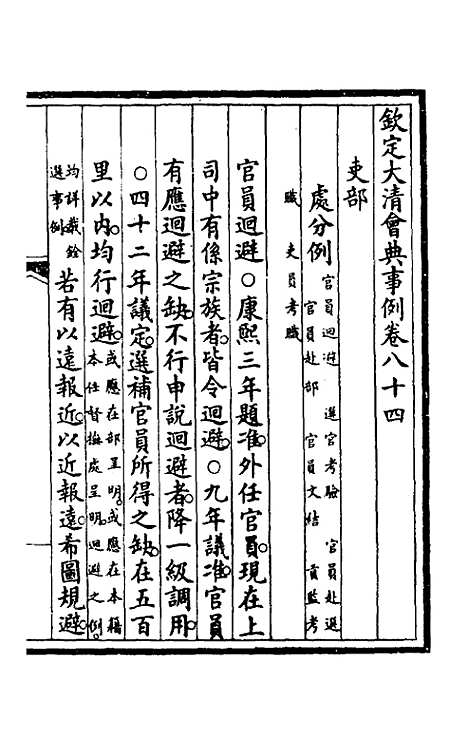 欽定大清會典事例卷八十四
吏部
處分例 官員迴避 選官考驗 官員赴選 官員赴部 官員文結 貢監考
職 吏員考職
官員迴避○康熙三年題准外任官員現在上
司中有係宗族者皆令迴避○九年議准官員
有應迴避之缺不行申說迴避者降一級調用
○四十二年議定選補官員所得之缺在五百
里以內均行迴避或應在部呈明或應在本籍本任督撫處呈明迴避之例
均詳載銓選事例若有以遠報近以近報遠希圖規避